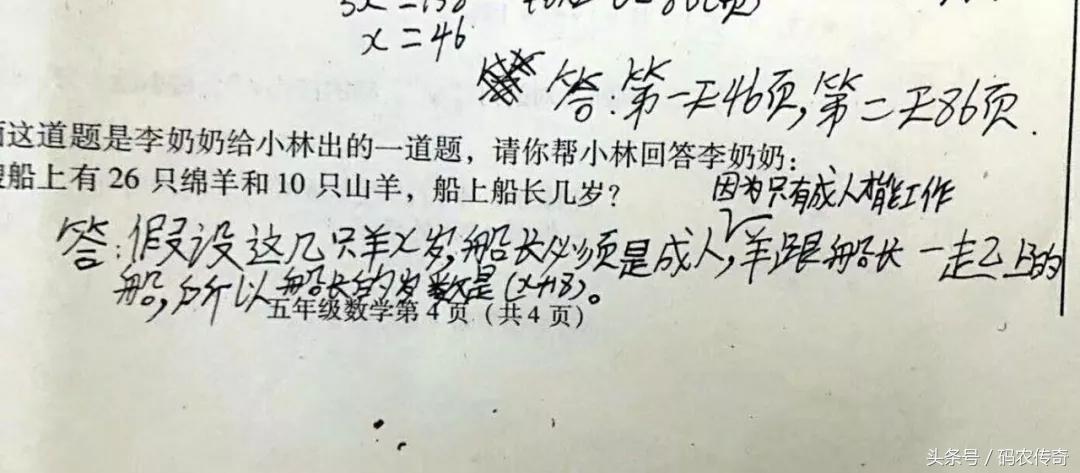 3x=138
x=46
答:第一天46页,第二天86页.
这道题是李奶奶给小林出的一道题,请你帮小林回答李奶奶:
船上有 26 只绵羊和 10 只山羊,船上船长几岁?
因为只有成人才能工作
答:假设这几只羊x岁,船长必须是成人,羊跟船长一起上的
船,所以船长的岁数是(x+18)。
五年级数学第 4 页(共 4 页)
头条号 / 码农传奇